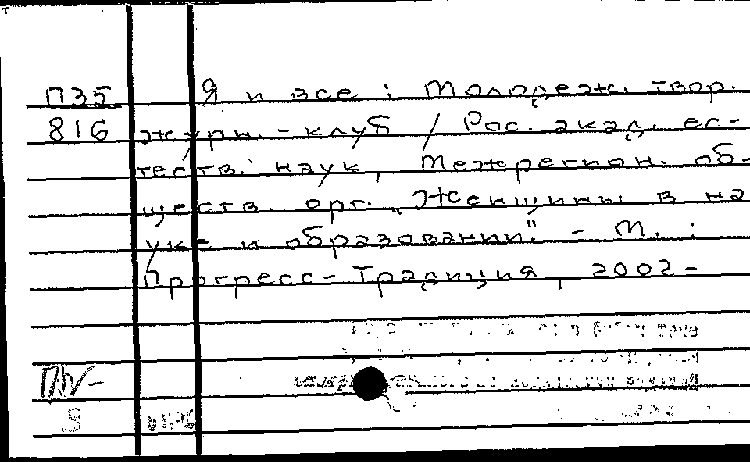 П35 Я и все : Молодеж. твор.
816 журн. - клуб / Рос. акад. ес-
теств. наук, Межрегион. об-
ществ. орг. „Женщины в на
уке и образовании". - М. :
Прогресс-Традиция, 2002-